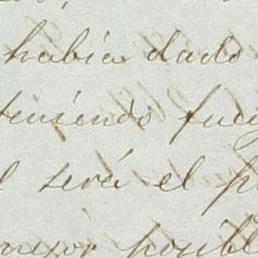 habia dado
teniendo
será el
mejor posibl